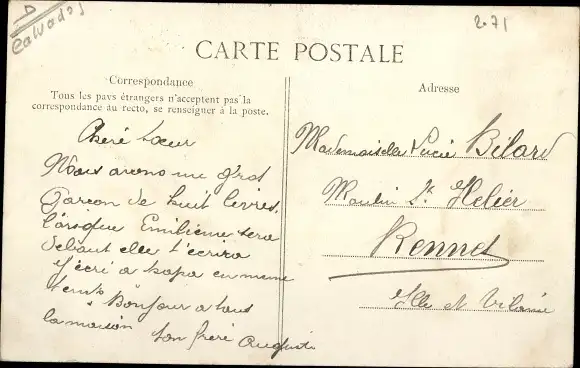 Calvados
2.71
CARTE POSTALE
Correspondance
Tous les pays étrangers n'acceptent pas la
correspondance au recto, se renseigner à la poste.
Adresse
Cheré Sœur
Nous avons un gros
Garcon de huit livres,
lorsque Emilienne sera
debout elle t'écrira
J'écri a papa en meme
temps Bonjour a tous
la maison ton frère Auguste
Mademoiselle Lucie Bilard
Moulin St Helier
Rennes
Ille et Vilaine